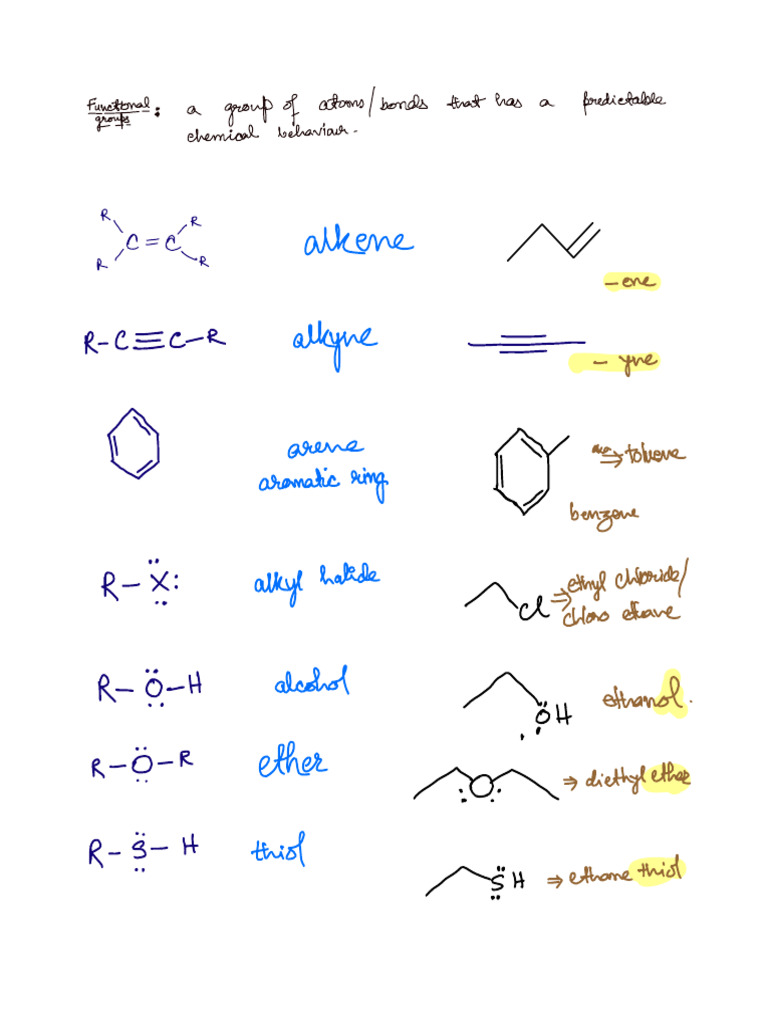 Functional groups : a group of atoms/bonds that has a predictable
chemical behaviour.
R R
C=C
R R
alkene
-ene
R-C≡C-R
alkyne
- yne
arene
aromatic ring
⇒ toluene
benzene
R-X:
alkyl halide
Cl
⇒ ethyl chloride/
chloro ethane
R-O-H
alcohol
OH
ethanol.
R-O-R
ether
O
⇒ diethyl ether
R-S-H
thiol
SH
⇒ ethane thiol